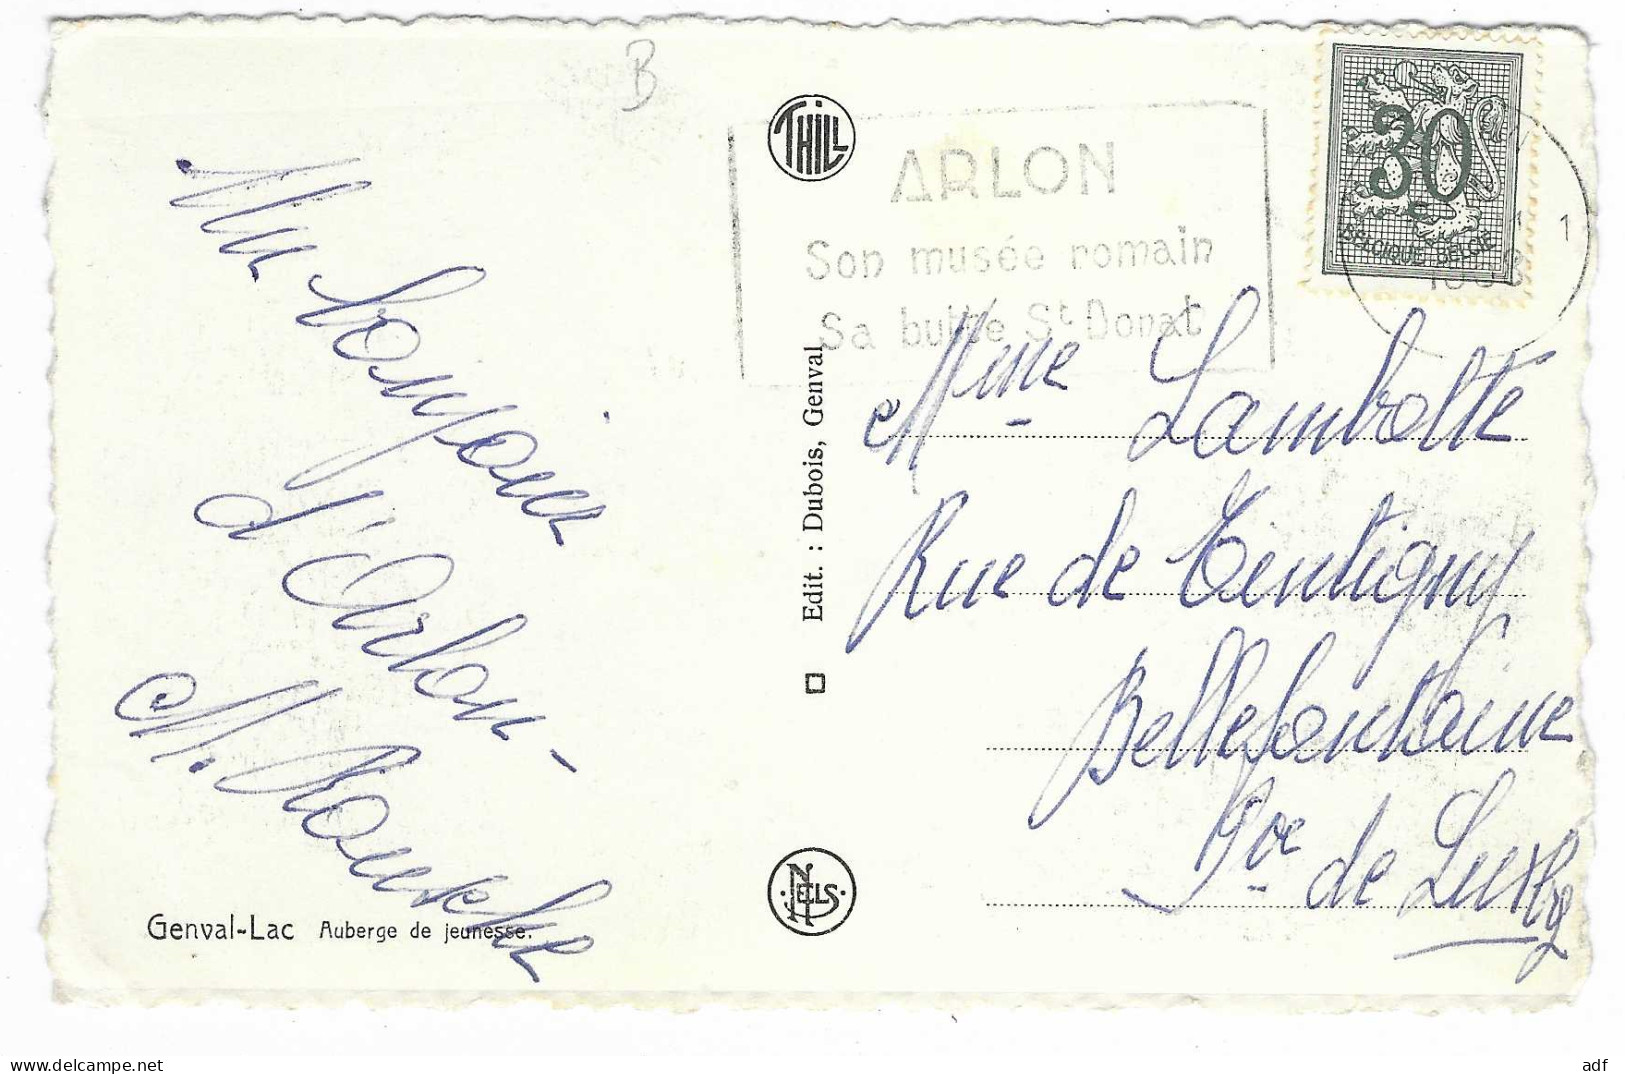 B
THILL
ARLON
Son musée romain
Sa butte St Donat
30
BELGIQUE BELGIE
1
Un bonjour
d'Arlon -
Edit. : Dubois, Genval
Mme Lambotte
Rue de Tintigny
Bellefontaine
Pce de Luxbg
NELS
Genval-Lac Auberge de jeunesse.
adf